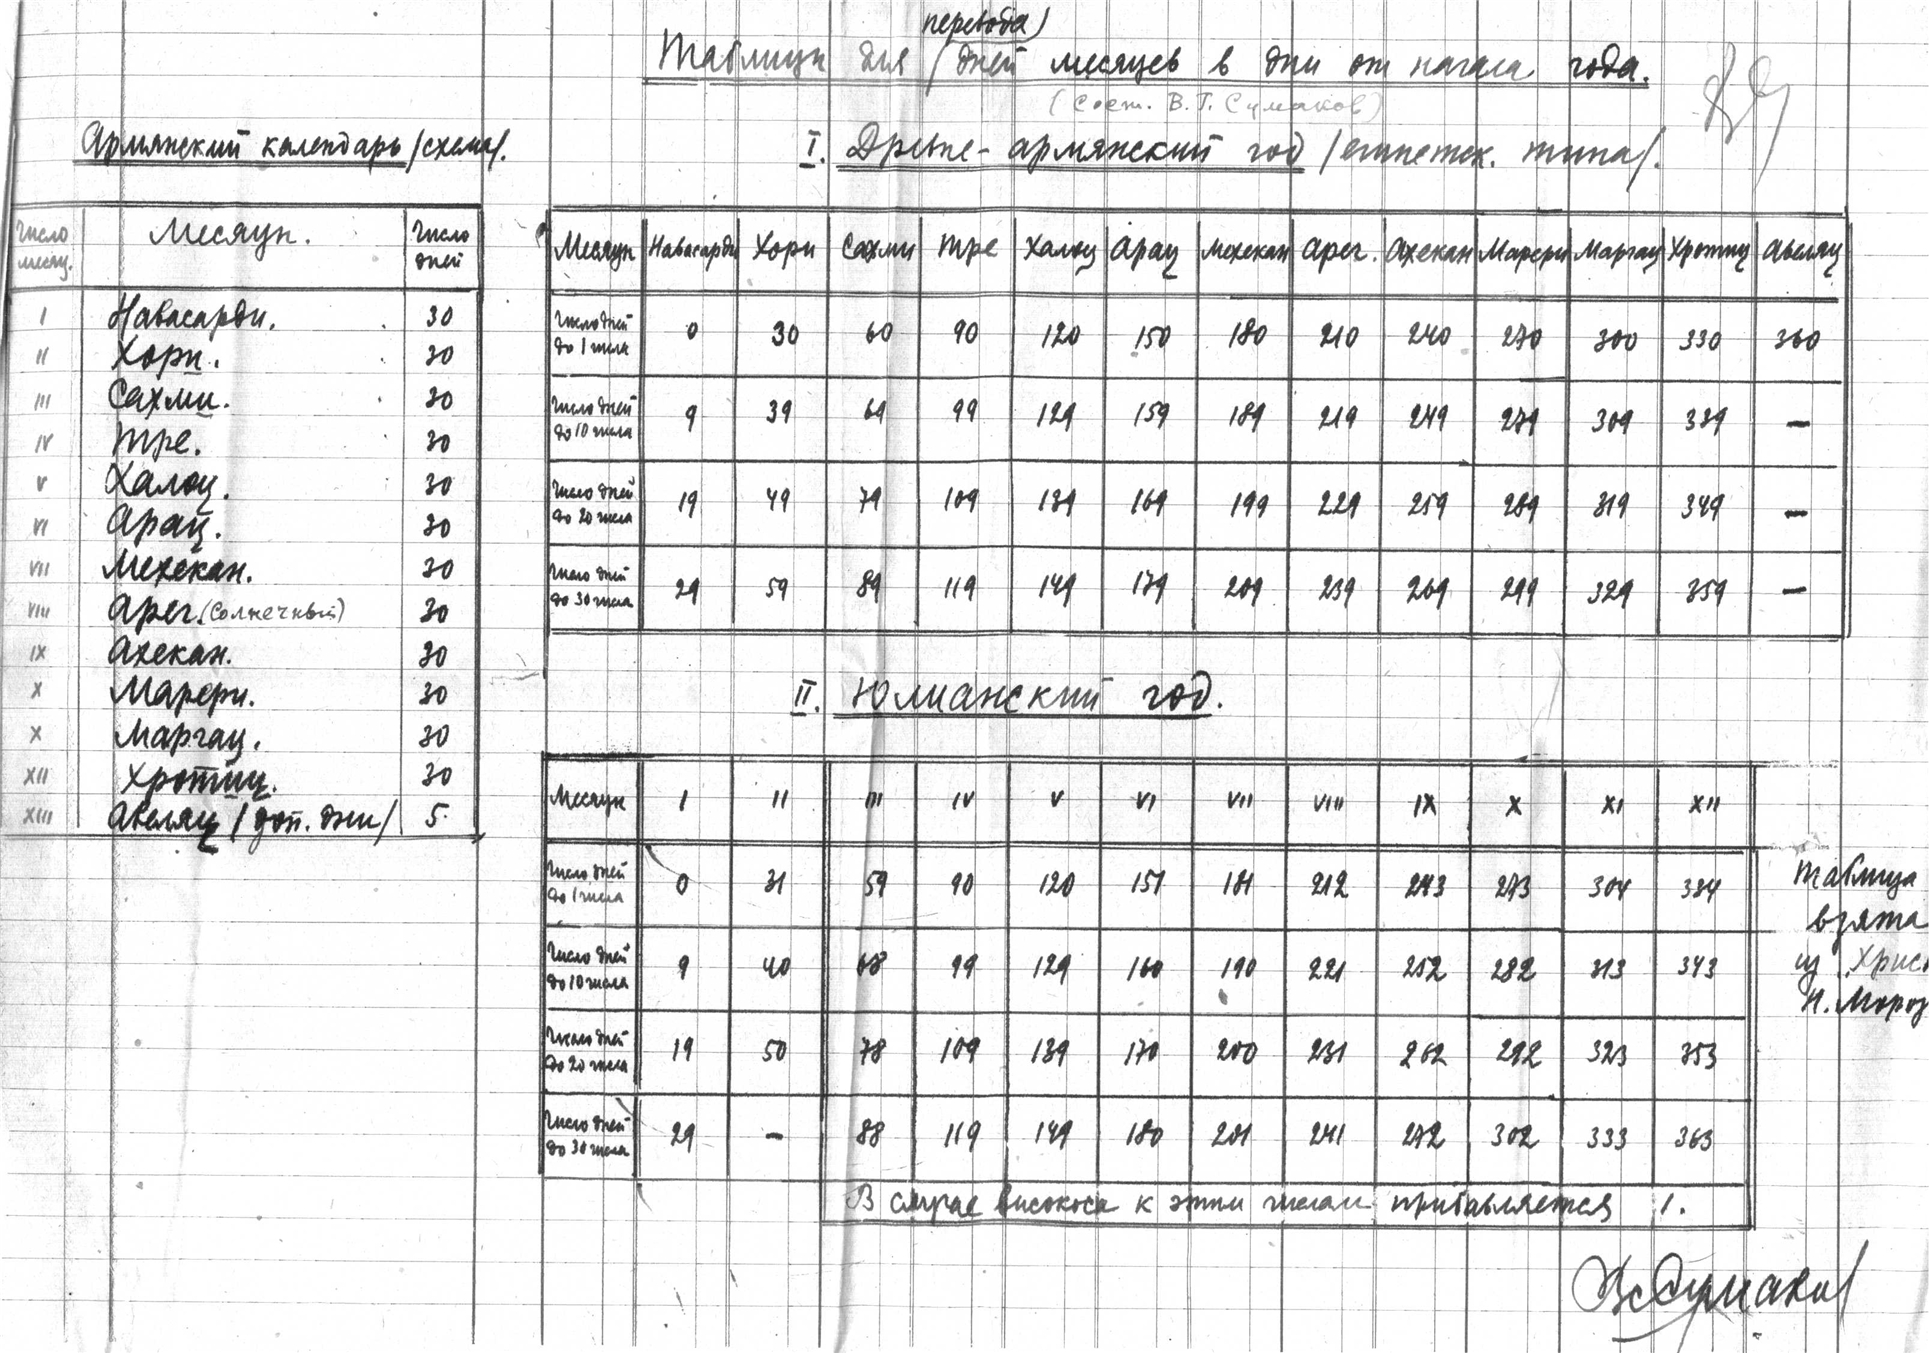 перевода/
Таблицы для / дней месяцев в дни от начала года.
(сост. В. Г. Сумаков)
Армянский календарь /схема/.
I. Древне-армянский год /египетск. типа/.
Число месяц. Месяцы. Число дней
I Навасарди. 30
II Хори. 30
III Сахми. 30
IV Тре. 30
V Халоц. 30
VI Арац. 30
VII Мехекан. 30
VIII Арег. (Солнечный) 30
IX Ахекан. 30
X Марери. 30
X Маргац. 30
XII Хротиц. 30
XIII Авеляц /доп. дни/ 5.
Месяцы Навасарди Хори Сахми Тре Халоц Арац Мехекан Арег. Ахекан Марери Маргац Хротиц Авеляц
Число дней до 1 числа 0 30 60 90 120 150 180 210 240 270 300 330 360
Число дней до 10 числа 9 39 69 99 129 159 189 219 249 279 309 339 —
Число дней до 20 числа 19 49 79 109 139 169 199 229 259 289 319 349 —
Число дней до 30 числа 29 59 89 119 149 179 209 239 269 299 329 359 —
II. Юлианский год.
Месяцы I II III IV V VI VII VIII IX X XI XII
Число дней до 1 числа 0 31 59 90 120 151 181 212 243 273 304 334
Число дней до 10 числа 9 40 68 99 129 160 190 221 252 282 313 343
Число дней до 20 числа 19 50 78 109 139 170 200 231 262 292 323 353
Число дней до 30 числа 29 — 88 119 149 180 201 241 272 302 333 363
В случае високоса к этим числам прибавляется 1.
Таблица
взята
из Хрис
Н. Мороз
Вс Сумаков